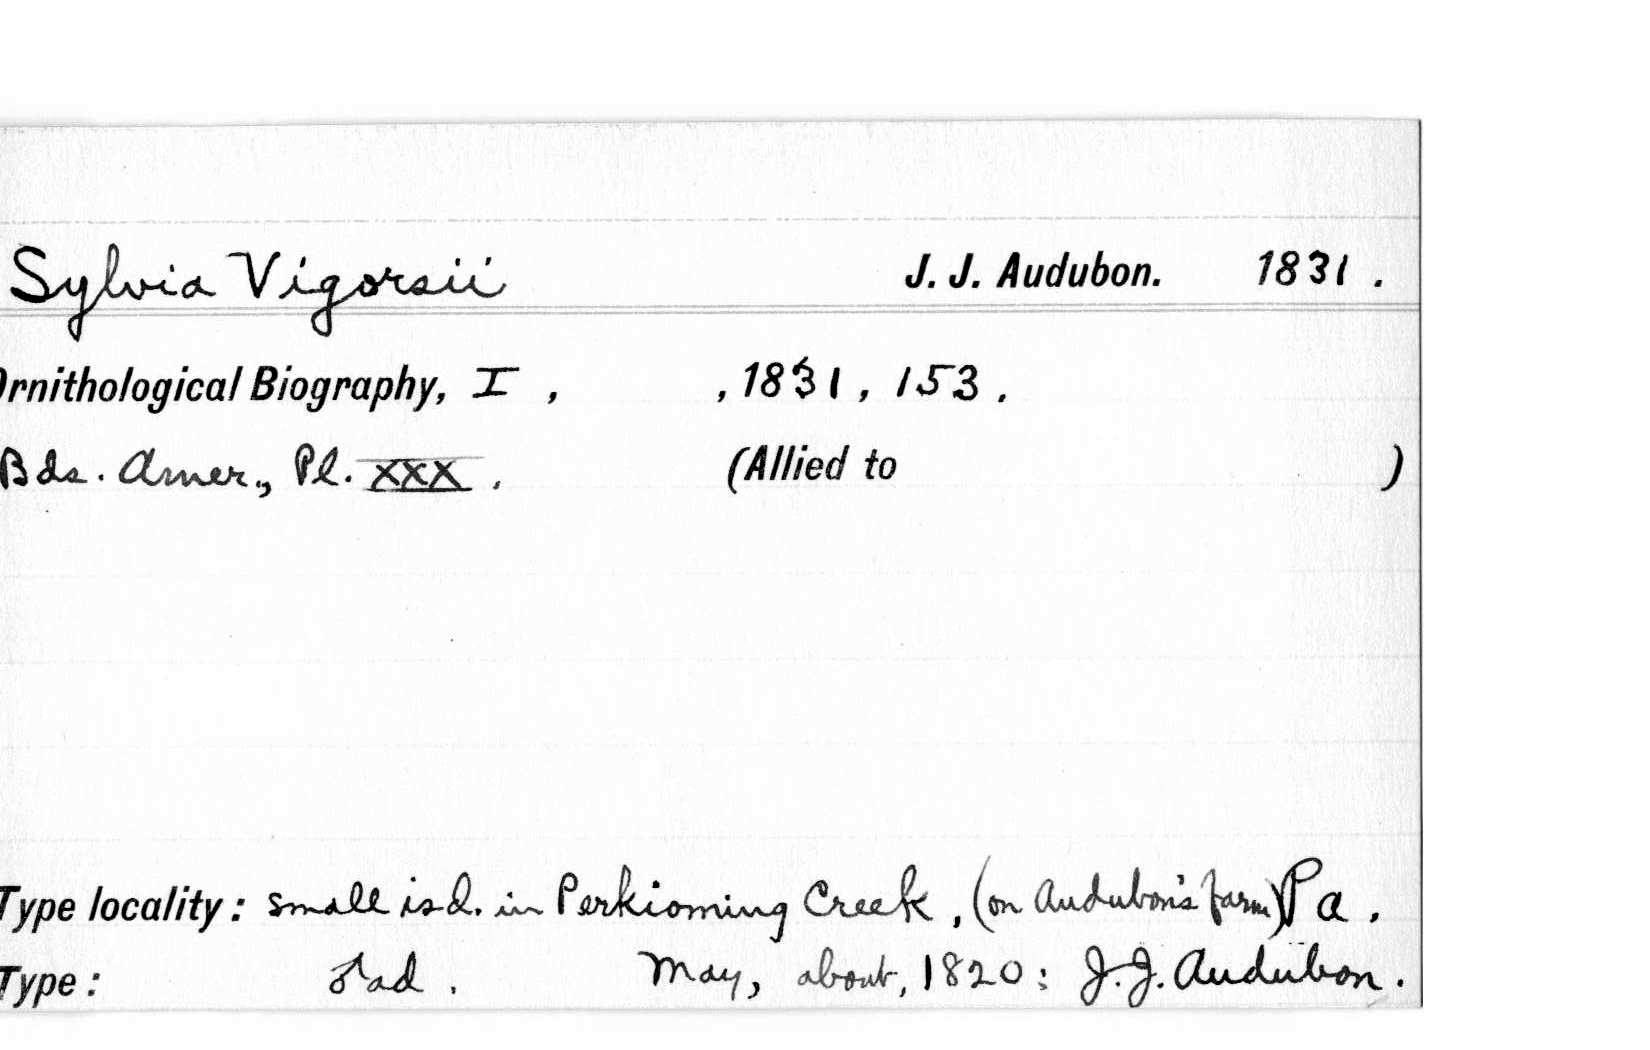 Sylvia Vigorsii J. J. Audubon. 1831 .
Ornithological Biography, I , , 1831 , 153 .
Bds. Amer., Pl. XXX . (Allied to )
Type locality : small isd. in Perkioming Creek , (on Audubon's farm) Pa .
Type : ♂ ad . May, about, 1820 : J. J. Audubon .